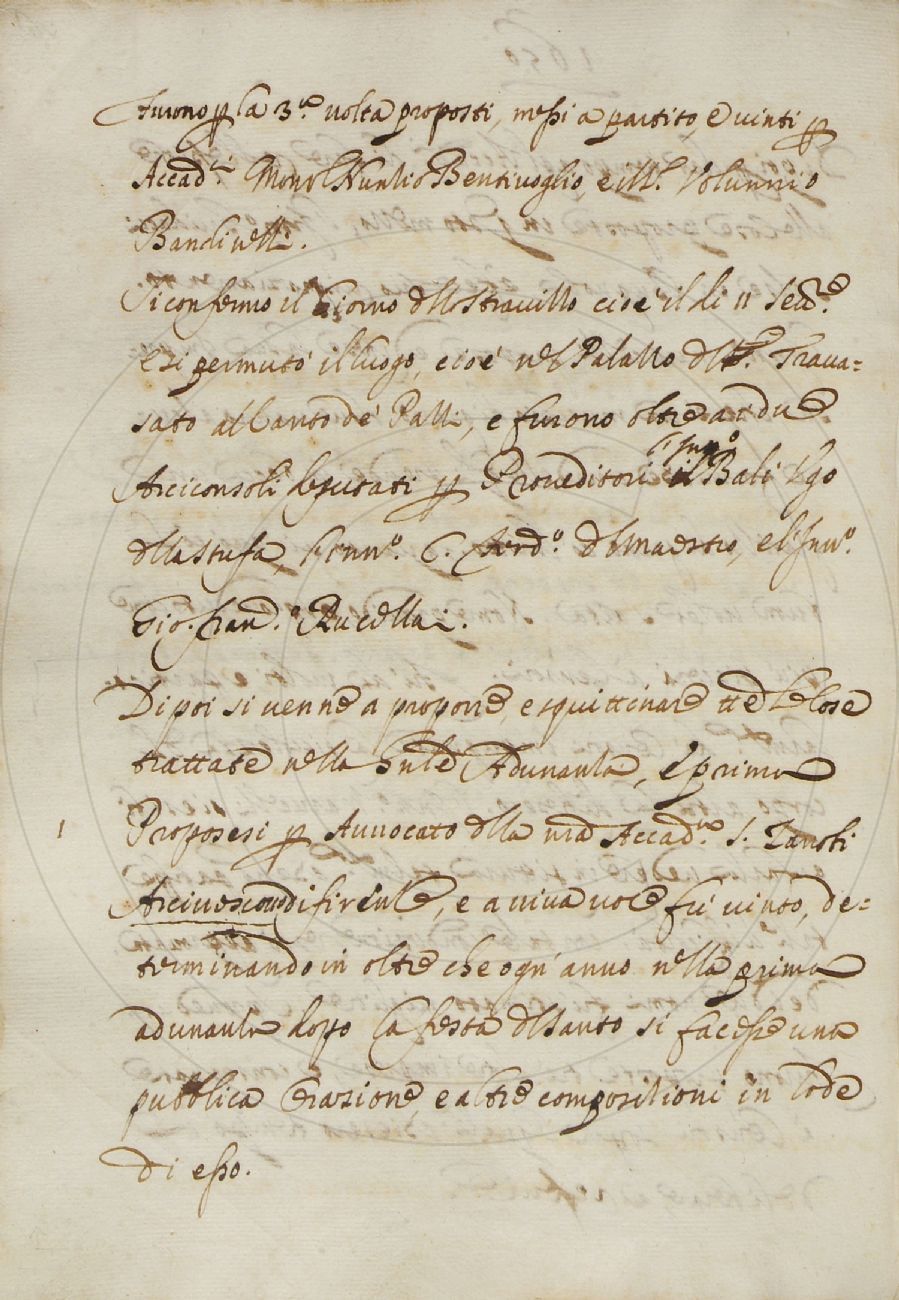 Furono p la 3.ª uolta proposti, messi a partito, e uinti p
Accad.ci Mons.r Nuntio Bentiuoglio, e Ill.
Bandinelli.
Si confermò il Giorno dello strauizzo cioè il di 11 Sett.e
e si permutò il luogo, cioè nel Palazzo del Traua=
sato al Canto de' Pazzi, e furono oltre a i due
Arciconsoli deputati p Proueditori l'Inn.º Bali Ugo
della Stufa, l'Inn.º C. Ferd.º del Maestro, e l'Inn.º
Gio. Fran.º Rucellai.
Di poi si uenne a proporre, e squittinare tte le cose
trattate nella Adunanza, e prima
1 Proposesi p Auuocato della nra Accad.ª S. Zanobi
Arciuescouo di firenze, e a uiua uoce fu' uinto, de=
terminando in oltre che ogn' anno nella prima
adunanza dopo la festa del Santo si facesse una
pubblica Orazione, e altre compositioni in lode
di esso.